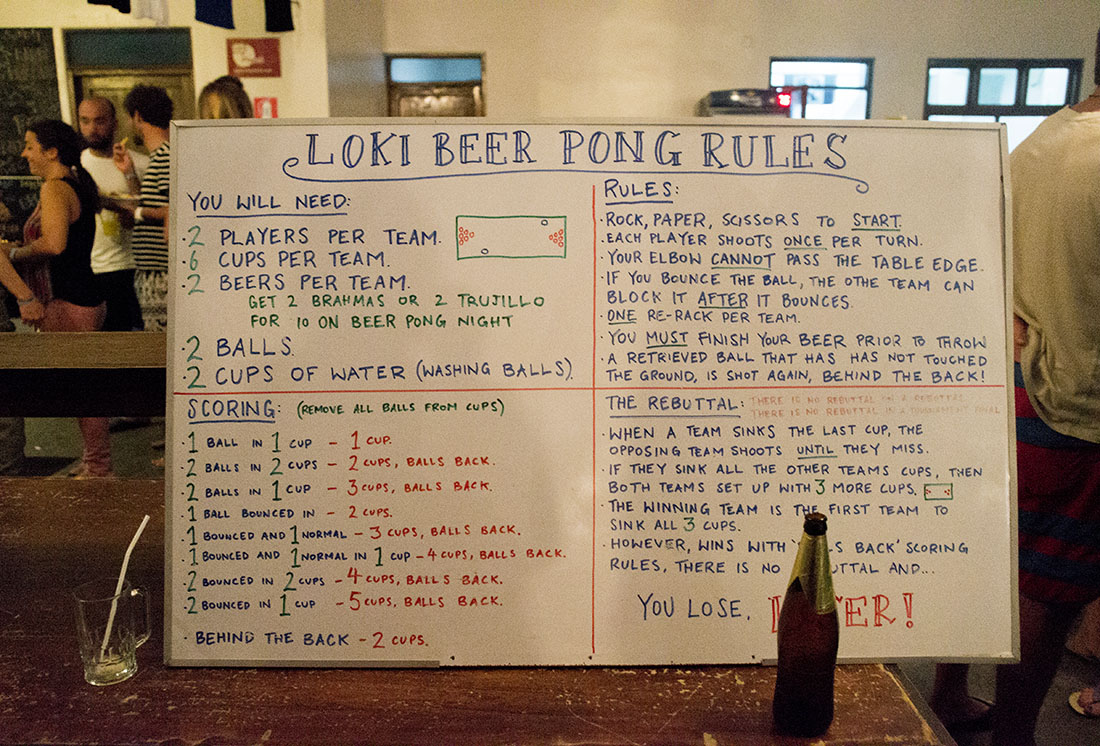 LOKI BEER PONG RULES
YOU WILL NEED:
·2 PLAYERS PER TEAM.
·6 CUPS PER TEAM.
·2 BEERS PER TEAM.
GET 2 BRAHMAS OR 2 TRUJILLO
FOR 10 ON BEER PONG NIGHT
·2 BALLS.
·2 CUPS OF WATER (WASHING BALLS).
RULES:
·ROCK, PAPER, SCISSORS TO START.
·EACH PLAYER SHOOTS ONCE PER TURN.
·YOUR ELBOW CANNOT PASS THE TABLE EDGE.
·IF YOU BOUNCE THE BALL, THE OTHE TEAM CAN
BLOCK IT AFTER IT BOUNCES.
·ONE RE-RACK PER TEAM.
·YOU MUST FINISH YOUR BEER PRIOR TO THROW
·A RETRIEVED BALL THAT HAS HAS NOT TOUCHED
THE GROUND, IS SHOT AGAIN, BEHIND THE BACK!
SCORING: (REMOVE ALL BALLS FROM CUPS)
·1 BALL IN 1 CUP - 1 CUP.
·2 BALLS IN 2 CUPS - 2 CUPS, BALLS BACK.
·2 BALLS IN 1 CUP - 3 CUPS, BALLS BACK.
·1 BALL BOUNCED IN - 2 CUPS.
·1 BOUNCED AND 1 NORMAL - 3 CUPS, BALLS BACK.
·1 BOUNCED AND 1 NORMAL IN 1 CUP - 4 CUPS, BALLS BACK.
·2 BOUNCED IN 2 CUPS - 4 CUPS, BALLS BACK.
·2 BOUNCED IN 1 CUP - 5 CUPS, BALLS BACK.
· BEHIND THE BACK - 2 CUPS.
THE REBUTTAL: THERE IS NO REBUTTAL IN A REBUTTAL
THERE IS NO REBUTTAL IN A TOURNAMENT FINAL
·WHEN A TEAM SINKS THE LAST CUP, THE
OPPOSING TEAM SHOOTS UNTIL THEY MISS.
·IF THEY SINK ALL THE OTHER TEAMS CUPS, THEN
BOTH TEAMS SET UP WITH 3 MORE CUPS.
·THE WINNING TEAM IS THE FIRST TEAM TO
SINK ALL 3 CUPS.
·HOWEVER, WINS WITH BACK' SCORING
RULES, THERE IS NO AND...
YOU LOSE,